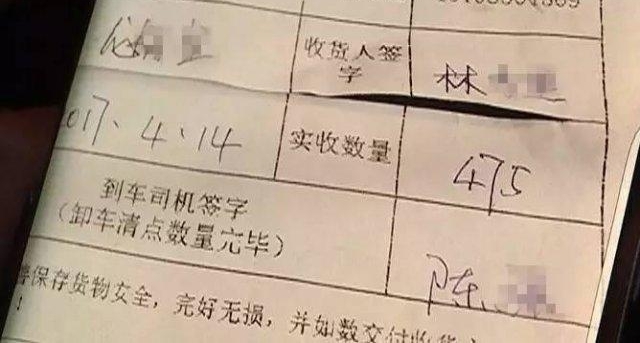 收货人签
字
林
2017、4、14
实收数量
475
到车司机签字
(卸车清点数量完毕)
陈
保存货物安全，完好无损，并如数交付收货
!